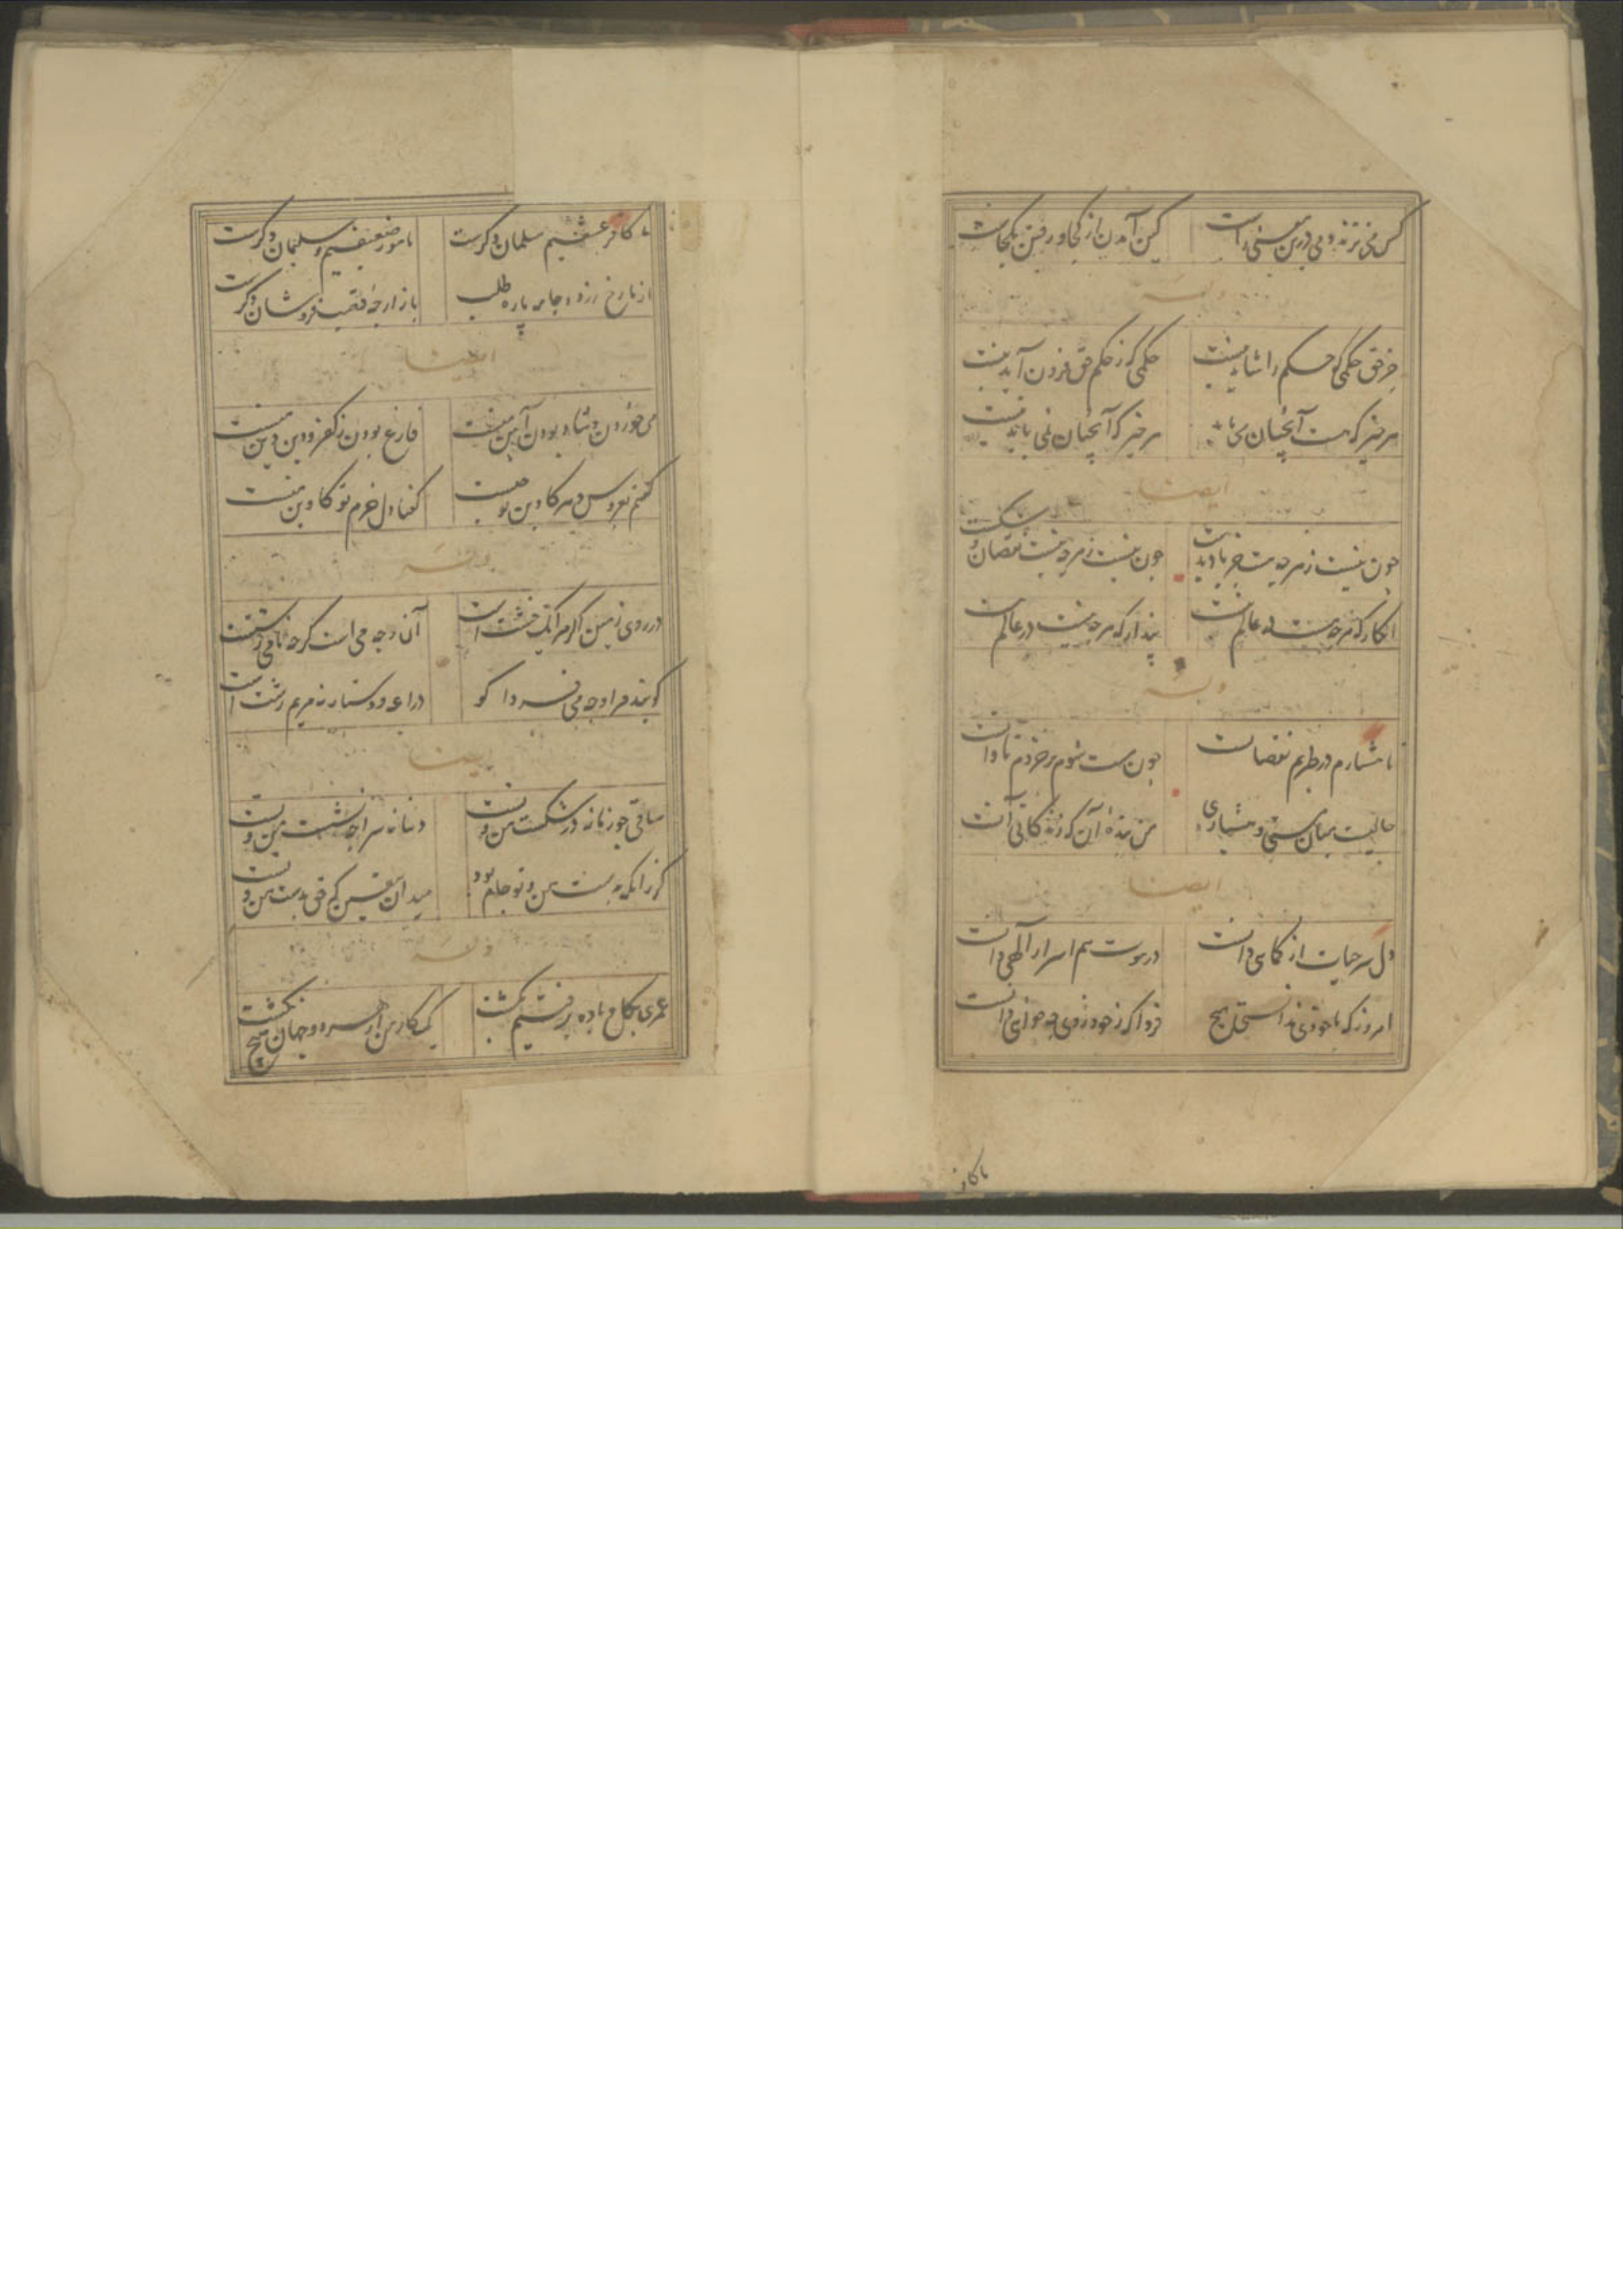 کس می نزند دمی درین معنی راست
کین آمدن از کجا و رفتن بکجاست
وله
جز حق حکمی که حکم را شاید نیست
حکمی که ز حکم حق فزون آید نیست
هر چیز که هست آنچنان می باید
هر چیز که آنچنان نمی باید نیست
ایضا
چون نیست ز هرچه هست جز باد بدست
چون نیست ز هرچه نیست نقصان و شکست
انکار که هرچه هست در عالم نیست
پندار که هرچه نیست در عالم هست
وله
تا هشیارم در طربم نقصانست
چون مست شوم بر خردم تاوانست
حالیست میان مستی و هشیاری
من بنده آن که زندگانی آنست
ایضا
دل سر حیات از کماهی دانست
در موت هم اسرار الهی دانست
امروز که با خودی ندانستی هیچ
فردا که ز خود روی چه خواهی دانست
ما کافر
ما کافر عشقیم مسلمان دگرست
ما مور ضعیفیم و سلیمان دگرست
از ما رخ زرد و جامه پاره طلب
بازارچه قصب فروشان دگرست
ایضا
می خوردن و شاد بودن آیین منست
فارغ بودن ز کفر و دین دین منست
گفتم بعروس دهر کابین تو چیست
گفتا دل خرم تو کابین منست
وله
در روی زمین اگر مرا یک خشت است
آن وجه می است گرچه نامی زشتست
گویند مرا وجه می فردا کو
دراعه و دستار نه مریم رشت است
ایضا
ساقی چو زمانه در شکست من و تست
دنیا نه سراچه نشست من و تست
گر زانکه بدست من و تو جام بود
میدان بیقین که حق بدست من و تست
وله
عمری بگل و باده برفتیم بگشت
یک کار من از هر دو جهان هیچ نگشت